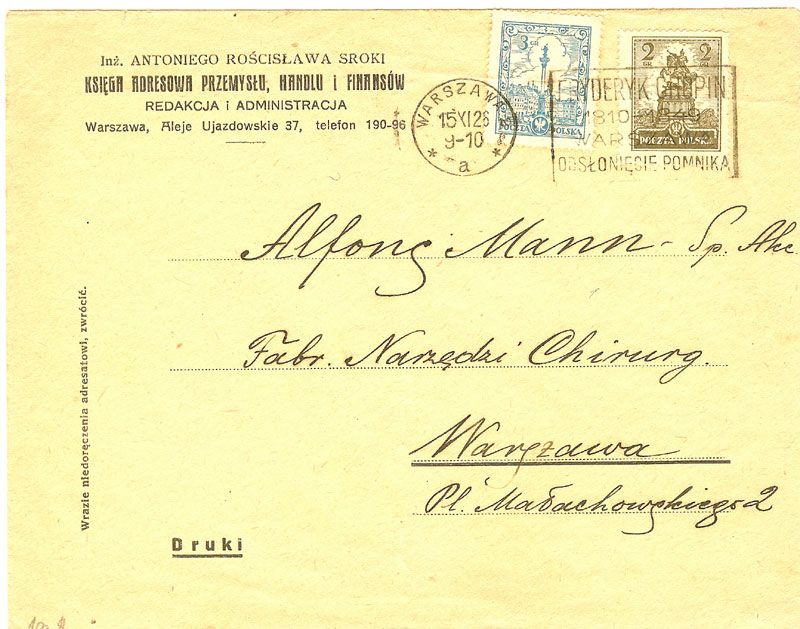 Inż. ANTONIEGO ROŚCISŁAWA SROKI
KSIĘGA ADRESOWA PRZEMYSŁU, HANDLU i FINANSÓW
REDAKCJA i ADMINISTRACJA
Warszawa, Aleje Ujazdowskie 37, telefon 190-96
WARSZAWA
15 XI 26
9-10
* a *
3 GR
POCZTA POLSKA
2 GR 2 GR
POCZTA POLSKA
FRYDERYK CHOPIN
1810 1849
WARS
ODSŁONIĘCIE POMNIKA
Alfons Mann - Sp. Akc
Fabr. Narzędzi Chirurg.
Warszawa
Pl. Małachowskiego 2
Wrazie niedoręczenia adresatowi, zwrócić.
Druki